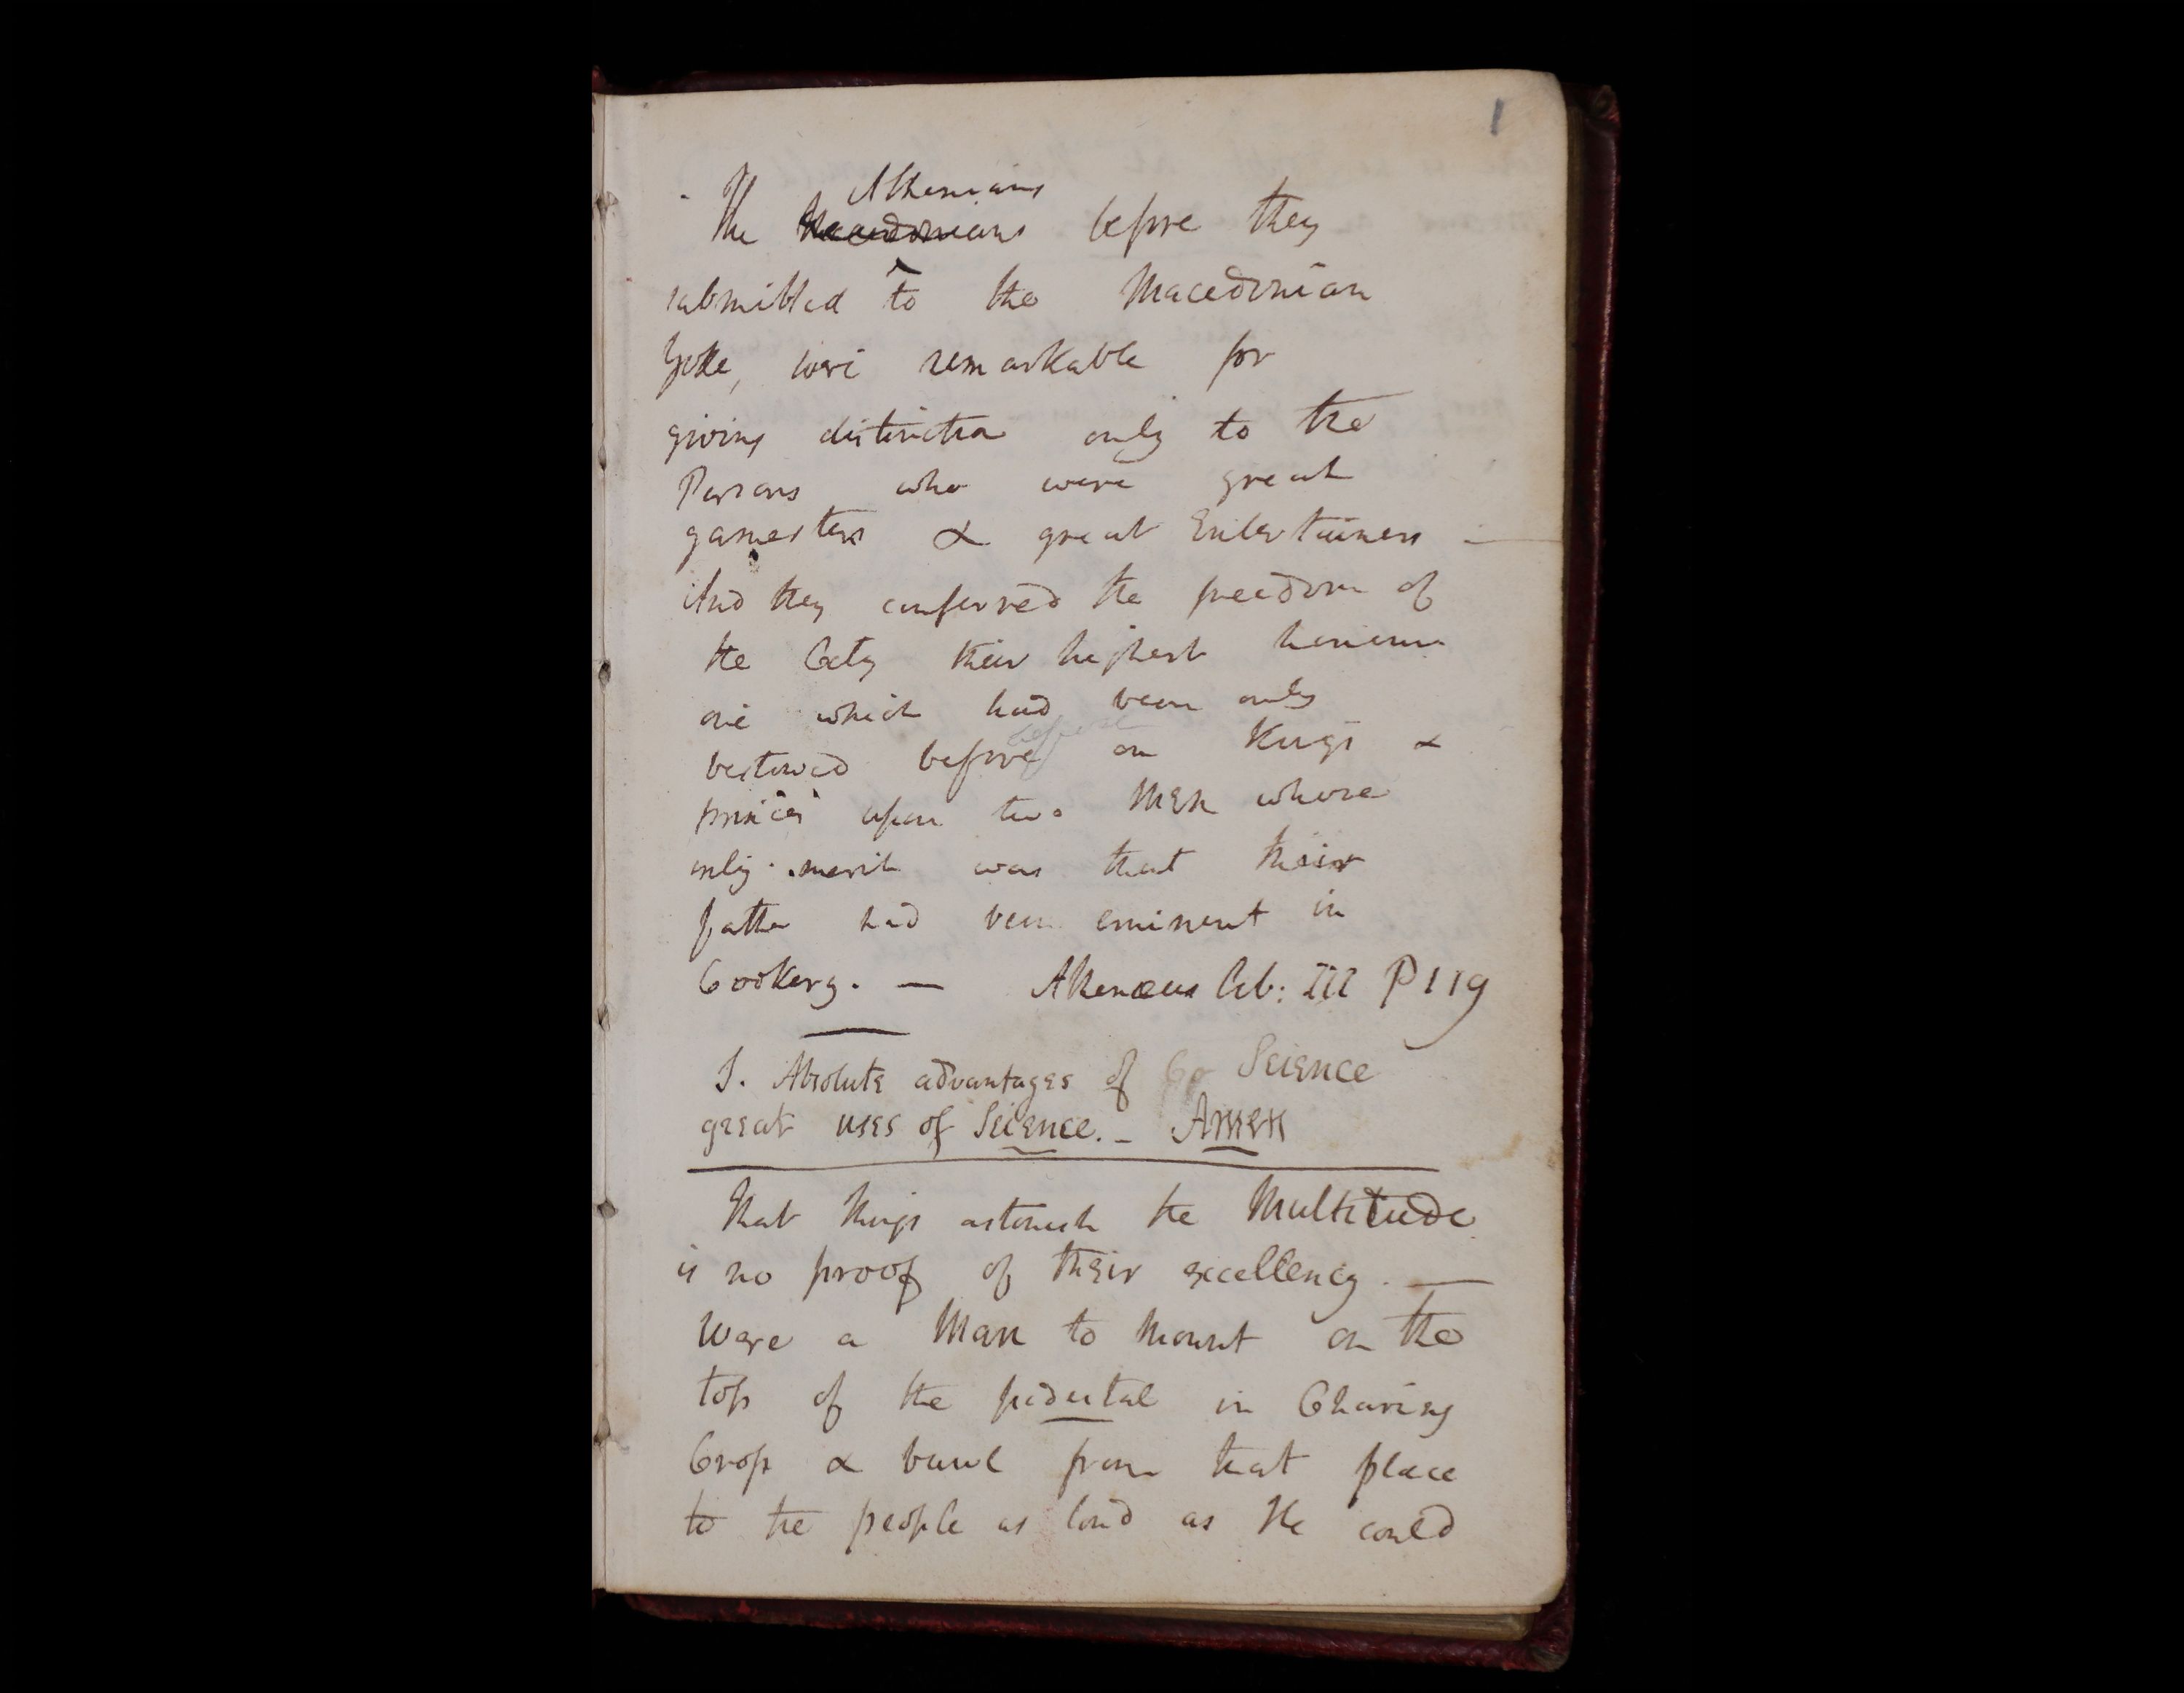 1
Athenians
The Macedonians before they
submitted to the Macedonian
Yoke, were remarkable for
giving distinction only to the
Persons who were great
gamesters & great Entertainers —
And they conferred the freedom of
the City their highest honour
one which had been only
before
bestowed before on Kings &
princes upon two Men whose
only merit was that their
father had been eminent in
Cookery. — Athenæus Lib: III P 119
I. Absolute advantages of Co Science
great uses of Science. – Amen
That things astonish the Multitude
is no proof of their excellency. —
Were a Man to Mount on the
top of the pedestal in Charing
Cross & bawl from that place
to the people as loud as He could